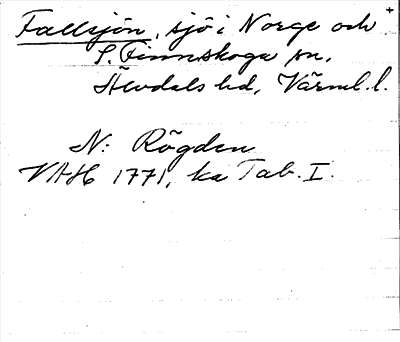 Fallsjön, sjö i Norge och +
S. Finnskoga sn,
Älvdals hd, Värml. l.
N: Rögden
VAH 1771, ka Tab. I.